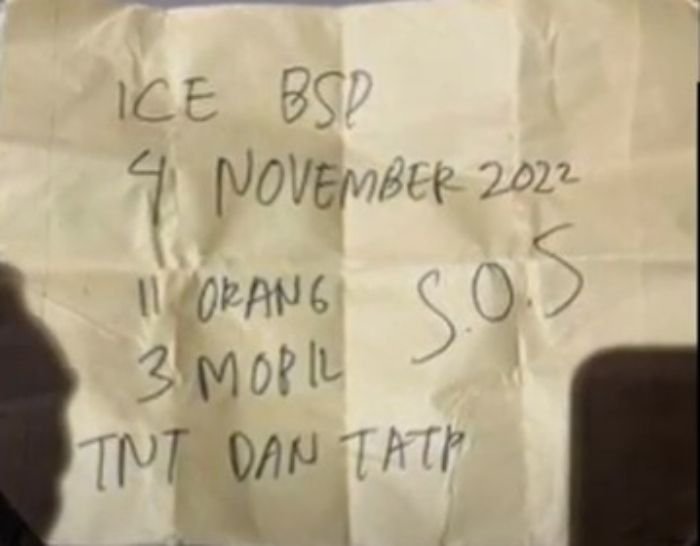 ICE BSD
4 NOVEMBER 2022
11 ORANG S.O.S
3 MOBIL
TNT DAN TATP